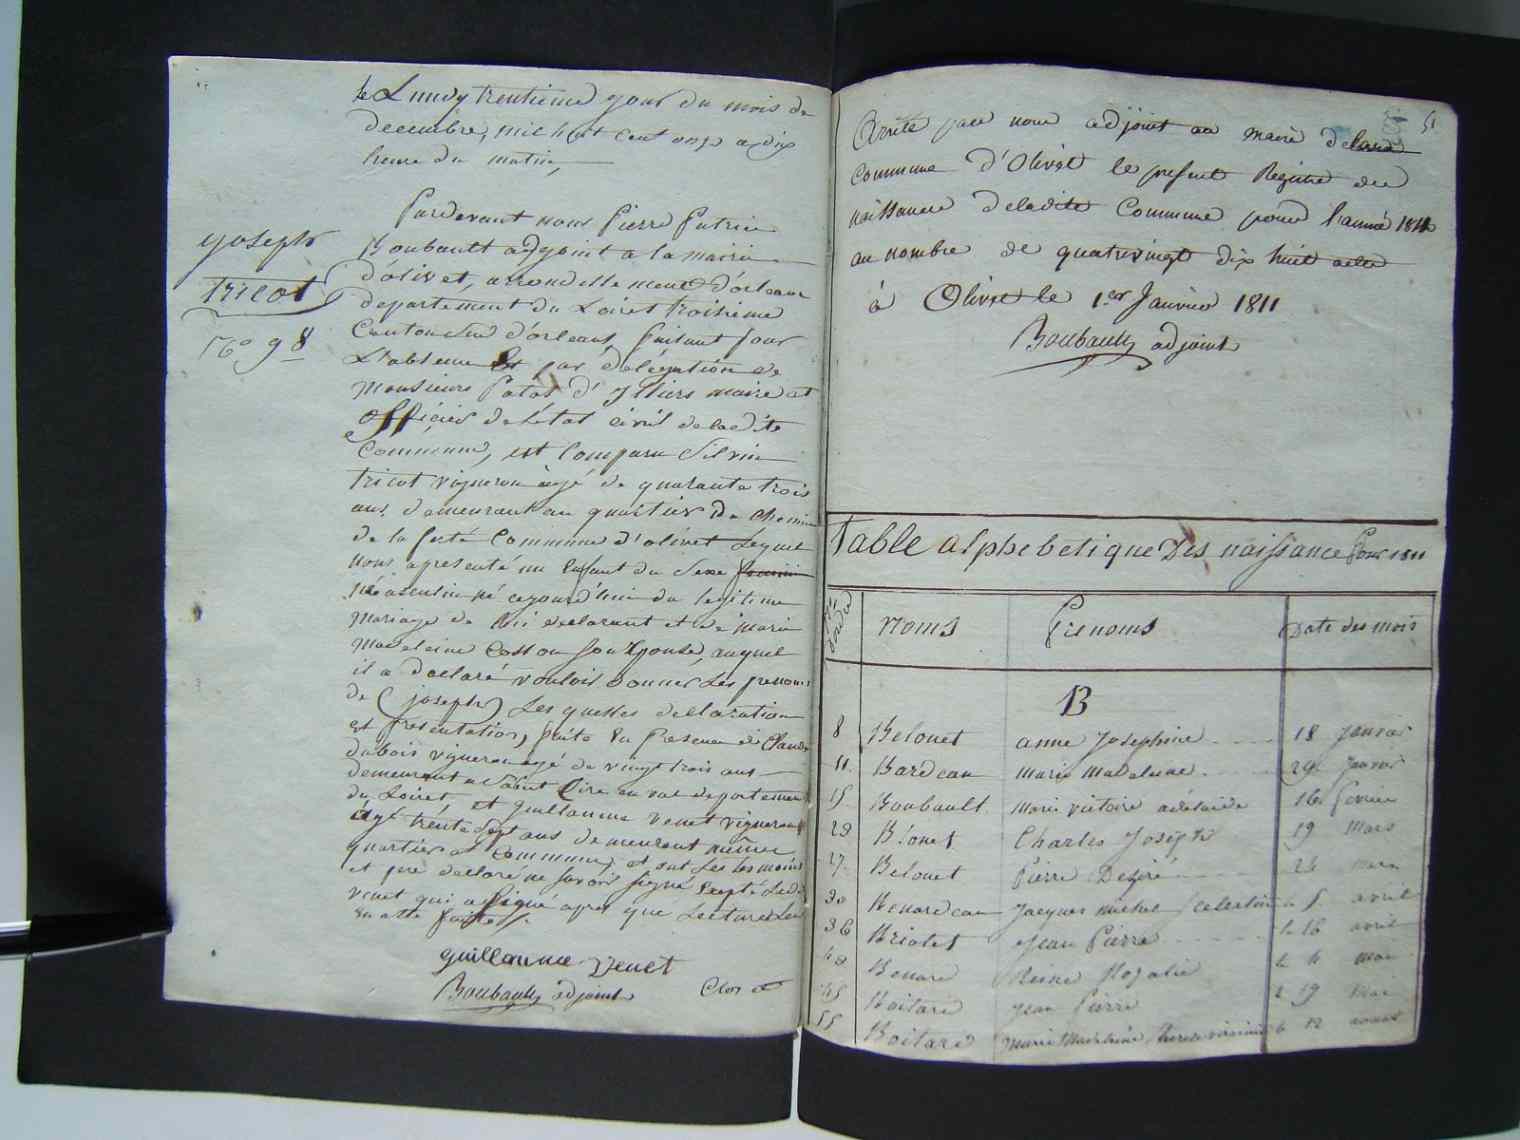 Le Lundy trentieme jour du mois de
decembre, mil huit cent onze a dix
heure du matin,
Pardevant nous Pierre Patrice
joseph
tricot
No 98
Boubault adjoint a la mairie
d'olivet, arrondissement d'orleans
departement du Loiret troisieme
Canton d'orleans faisant pour
L'absence et par délégation de
Monsieur Patas d'illiers maire et
officier de l'état civil de la dite
Commune, est Comparu Silvin
tricot vigneron agé de quarante trois
ans demeurant au quartier du chemin
de la ferté Commune d'olivet Lequel
nous a presenté un Enfant du Sexe feminin
Masculin né cejourd'hui du legitime
mariage de lui declarant et de marie
Madeleine Cosson Son Epouse, auquel
il a declaré vouloir donner Les prenoms
de (joseph) Les quelles declaration
et presentation, faite En Presence de Claude
dubois vigneron agé de vingt trois ans
demeurant a Saint Cire en val departement
du Loiret, et guillaume venet vigneron
agé trente Sept ans demeurant même
quartier et Commune, et ont Les temoins
et pere declaré ne Savoir Signé Excepté Ledit
venet qui a Signé apres que Lecture Leur
En a été faite
guillaume venet
Boubault adjoint
Clos et
51
Arreté par nous adjoint au maire de la
Commune d'Olivet le present Registre des
naissance de ladite Commune pour l'année 1811
au nombre de quatrevingt dix huit acte
à Olivet le 1er Janvier 1811
Boubault adjoint
Table alphebetique Des naissance Pour 1811
Noms Prenoms Date des mois
B
8 Belouet anne Josephine 18 Janvier
11 Baredeau Marie Madeleine 29 Janvier
15 Boubault Marie victoire adelaide 16 fevrier
20 Blouet Charles Joseph 19 Mars
27 Belouet Pierre Desiré 24 mars
30 Benardeau Jacques Michel Celestin le 5 avril
36 Briolet Jean Pierre le 16 avril
40 Benard Reine Rozalie le 4 mai
45 Boitard Jean Pierre le 19 Mai
55 Boitard Marie Madeleine Therese virginie le 12 aoust